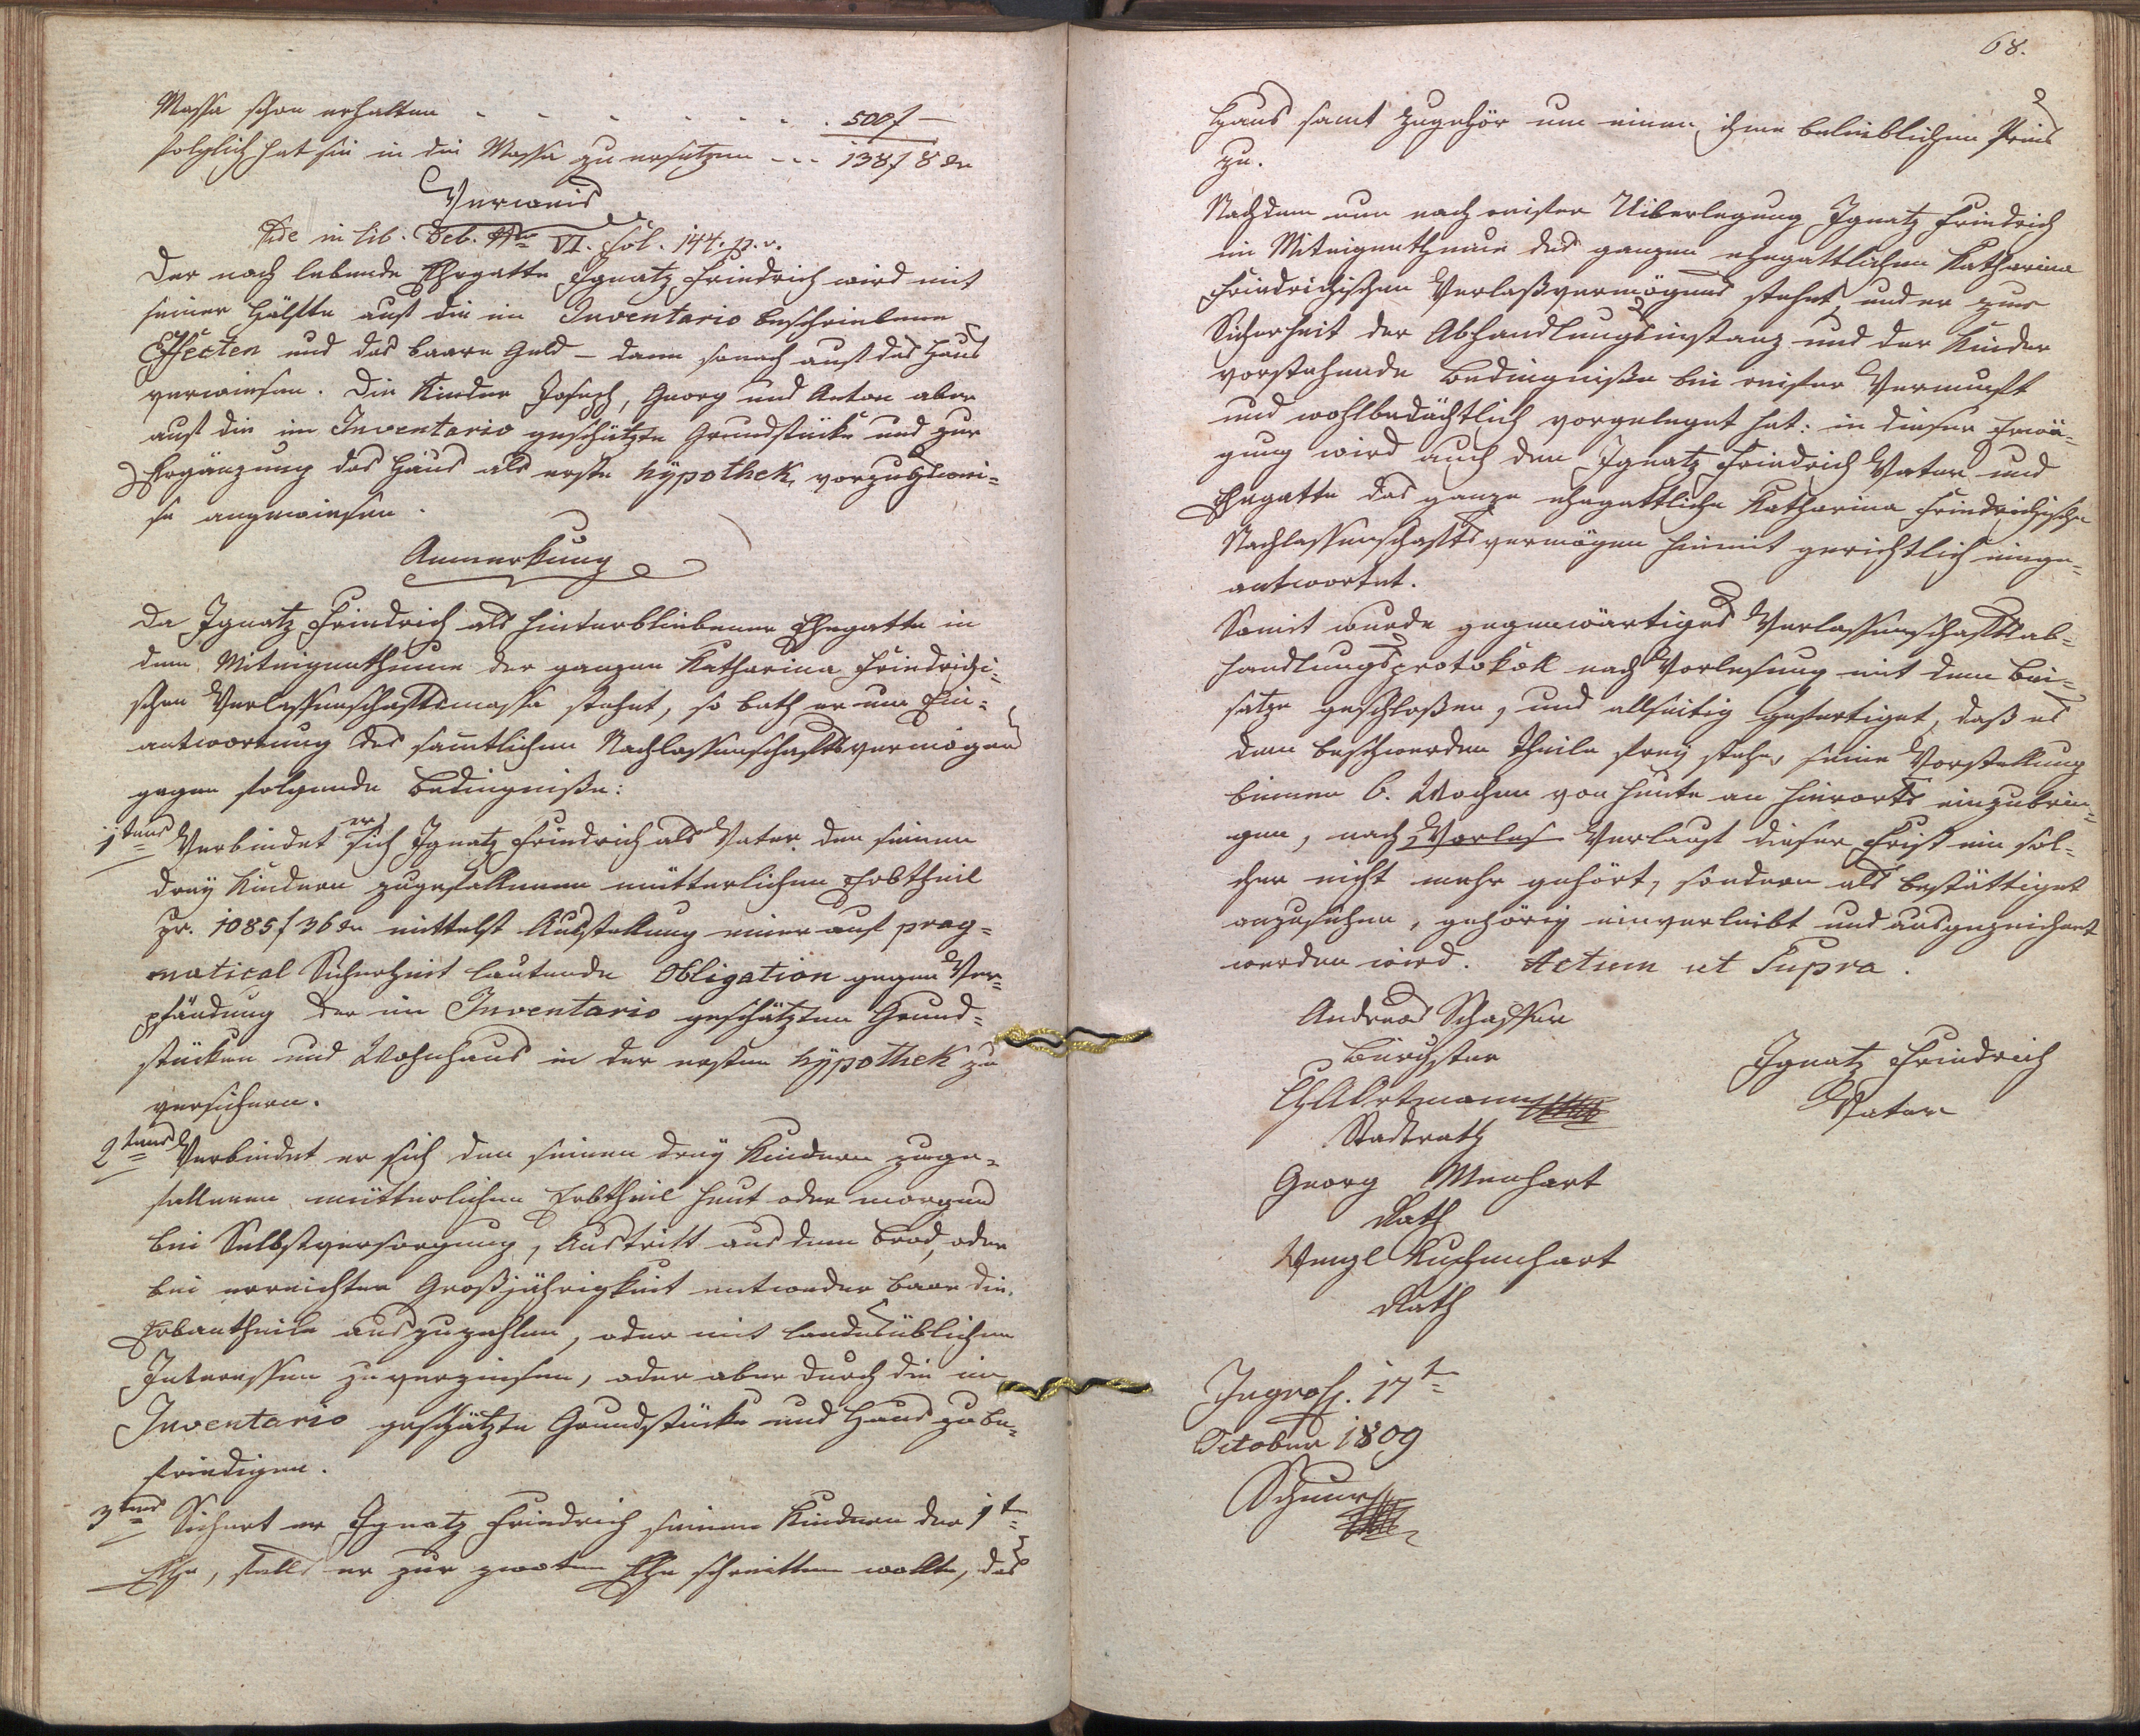 Massa schon erhalten - - - - - - . 500f —
folglich hat sie in die Massa zu ersetzen - - - 138f 8 dr
Verweis
Vide in lib. Deb. Nro VI. fol. 144. p. v.
Der noch lebende Ehegatte Ignatz Friedrich wird mit
seiner Hälfte auf die im Inventario beschriebene
Effecten und das baare Geld – dann sonach auf das Haus
verwiesen. Die Kinder Joseph, Georg und Anton aber
auf die im Inventario geschätzte Grundstücke und zur
Ergänzung das Haus als erste hÿpothek, vorzugswei=
se angewiesen.
Anmerkung
Da Ignatz Friedrich als hinterbliebener Ehegatte in
dem Miteigenthume der ganzen Katharina Friedrichi=
schen Verlassenschaftsmassa stehet, so bath er um Ein=
antwortung des sämtlichen Nachlassenschaftsvermögens
gegen folgende Bedingnisse:
1tens Verbindet er sich Ignatz Friedrich als Vater den seinen
dreÿ Kindern zugefallenen mütterlichen Erbtheil
pr. 1085f 36 dr mittelst Ausstellung einer auf prag=
matical Sicherheit lautende Obligation gegen Ver=
pfändung der im Inventario geschätzten Grund=
stücken und Wohnhaus in der ersten hÿpothek zu
versichern.
2tens Verbindet er sich den seinen dreÿ Kindern zuge=
fallenen mütterlichen Erbtheil heut oder morgen
bei Selbstversorgung, Austritt aus dem Brod, oder
bei erreichter Großjährigkeit entweder baar die
Erbantheile auszuzahlen, oder mit landesüblichen
Interessen zu verzinsen, oder aber durch die im
Inventario geschätzte Grundstücke und Haus zu be=
friedigen.
3tens Sichert er Ignatz Friedrich seinen Kindern der 1t
Ehe, falls er zur zwoten Ehe schreitten wollte, das
68.
Haus samt Zugehör um einen ihme beliebigen Preis
zu.
Nachdem nun nach reifer Uiberlegung Ignatz Friedrich
im Miteigenthume des ganzen ehegattlichen Katharina
Friedrichischen Verlaßvermögens stehet, und er zur
Sicherheit der Abhandlungsinstanz und der Kinder
vorstehende Bedingniße bei reifer Vernunft
und wohlbedächtlich vorgeleget hat: in dieser Erwä=
gung wird auch dem Ignatz Friedrich Vater und
Ehegatte das ganze ehegattliche Katharina Friedrichische
Nachlassenschaftsvermögen hiemit gerichtlich einge=
antwortet.
Somit wurde gegenwärtiges Verlassenschaftsab=
handlungsprotokoll nach Vorlesung mit dem Bei=
satze geschloßen, und allseitig gefertiget, daß es
dem beschwerden Theile freÿ stehe, seine Vorstellung
binnen 6. Wochen von heute an hierorts einzubrin=
gen, nach Vorles Verlauf dieser Frist ein sol=
cher nicht mehr gehört, sondern als bestättiget
anzusehen, gehörig einverleibt und ausgezeichnet
werden wird. Actum ut Supra.
Andreas Schaffer
Bürgster
Ortmann
Stadtrath
Ignatz Friedrich
Vater
Georg Menhart
Rath
Wenzl Kuchenhart
Rath
Ingross. 17t
October 1809